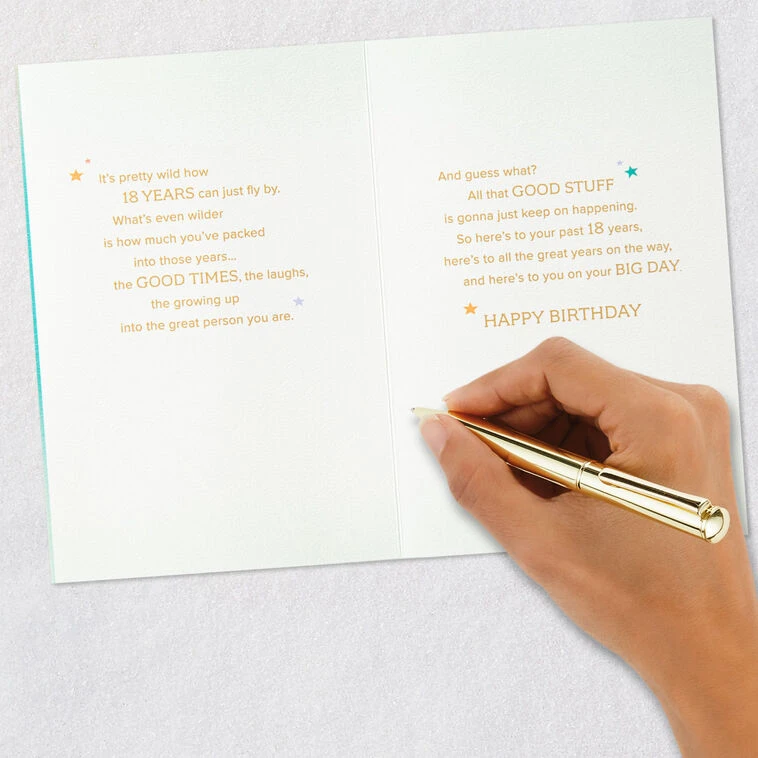 It's pretty wild how
18 YEARS can just fly by.
What's even wilder
is how much you've packed
into those years...
the GOOD TIMES, the laughs,
the growing up
into the great person you are.
And guess what?
All that GOOD STUFF
is gonna just keep on happening.
So here's to your past 18 years,
here's to all the great years on the way,
and here's to you on your BIG DAY.
HAPPY BIRTHDAY